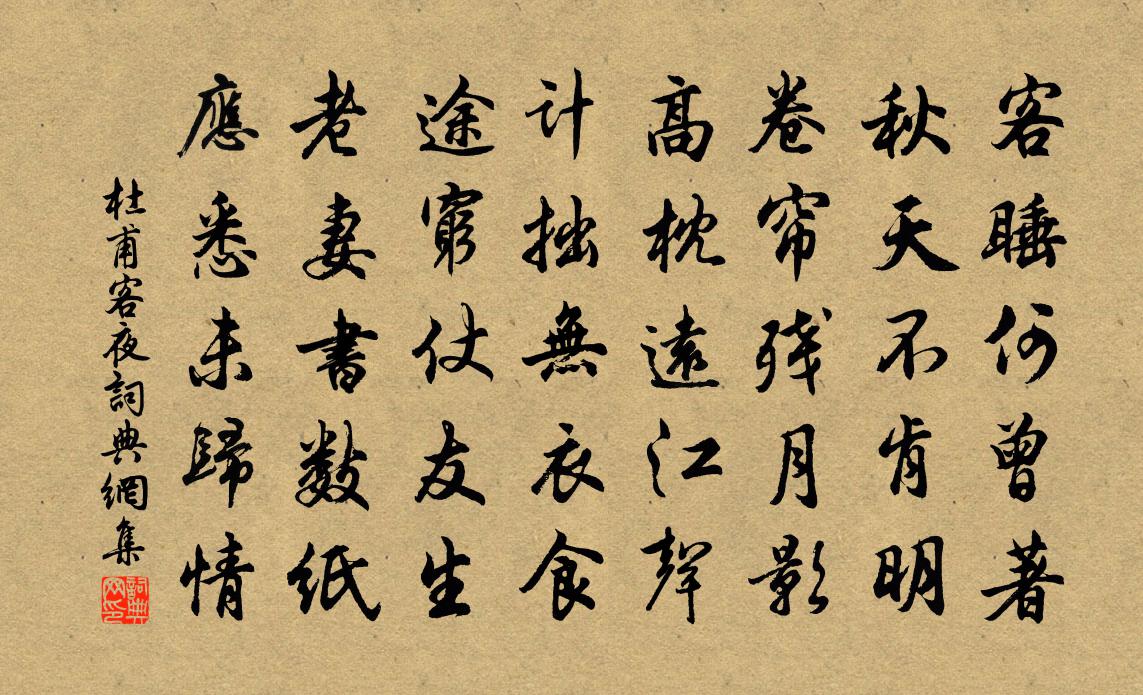 客睡何曾著
秋天不肯明
卷帘残月影
高枕遠江聲
计拙無衣食
途窮仗友生
老妻書數纸
應悉未歸情
杜甫客夜詞典網集
詞典网印